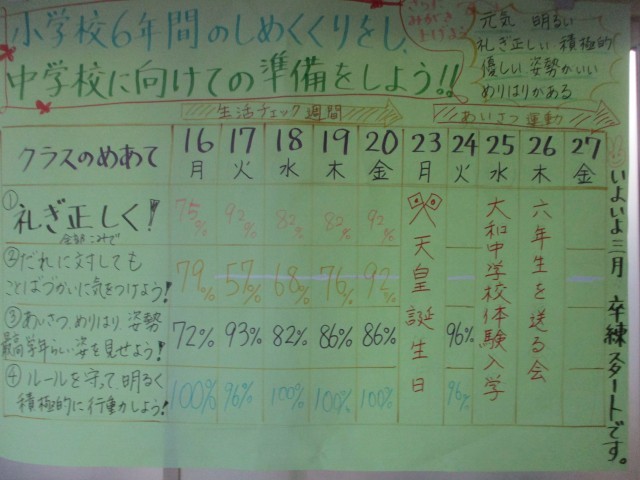 小学校6年間のしめくくりをし、
中学校に向けての準備をしよう!!
さらに
みがきを
上げよう!
元気 明るい
礼ぎ正しい 積極的
優しい 姿勢がいい
めりはりがある
生活チェック週間
あいさつ運動
クラスのめあて 16 17 18 19 20 23 24 25 26 27
月 火 水 木 金 月 火 水 木 金
①礼ぎ正しく! 75% 92% 82% 82% 92%
②だれに対しても
ことばづかいに気をつけよう! 79% 57% 68% 76% 92%
③あいさつ、めりはり、姿勢
最高学年らしい姿を見せよう! 72% 93% 82% 86% 86% 96%
④ルールを守って明るく
積極的に行動しよう! 100% 96% 100% 100% 100% 96%
天皇誕生日
大和中学校体験入学
六年生を送る会
いよいよ三月 卒練スタートです。